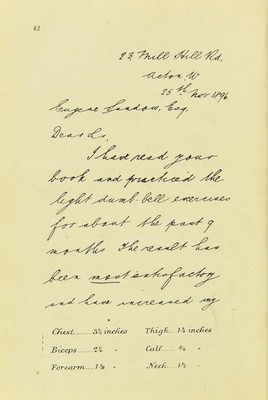 42
22 Mill Hill Rd.
Acton. W
25th Nov 1896
Eugene Sandow, Esq.
Dear Sir,
I have read your
book and practiced the
light dumb-bell exercises
for about the past 9
months The result has
been most satisfactory
and have increased my
Chest 3½ inches Thigh 1¼ inches
Biceps 2¼ " Calf ¾ "
Forearm 1⅛ " Neck 1½ "